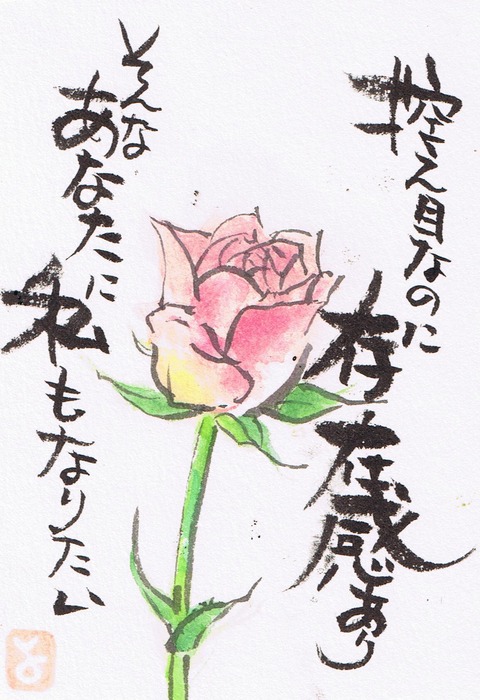 控え目なのに
存在感あり
そんな
あなたに
私もなりたい
と